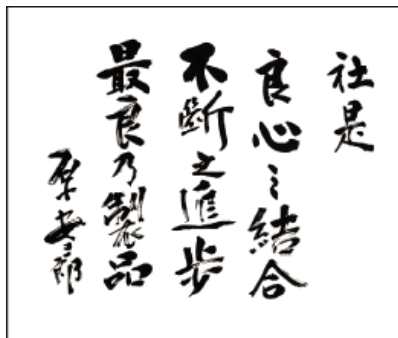 社是
良心之結合
不斷之進歩
最良乃製品
原安三郎